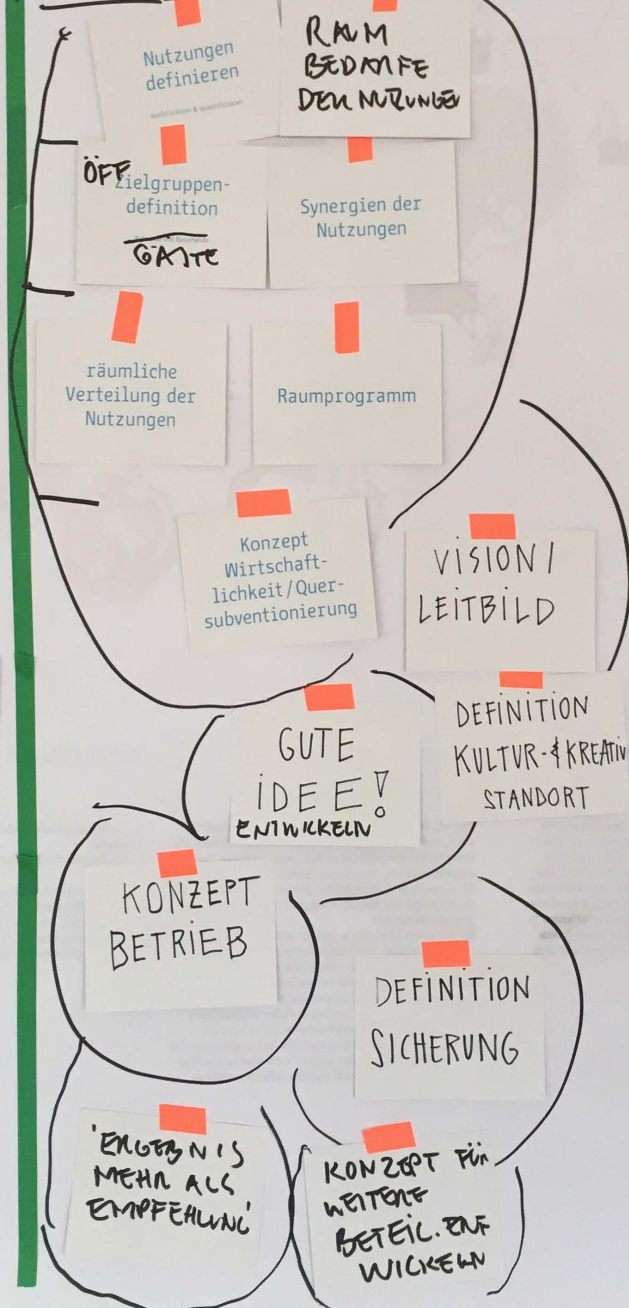 Nutzungen
definieren
RAUM
BEDARFE
DER NUTZUNGEN
ÖFF
Zielgruppen-
definition
GÄSTE
Synergien der
Nutzungen
räumliche
Verteilung der
Nutzungen
Raumprogramm
Konzept
Wirtschaft-
lichkeit/Quer-
subventionierung
VISION/
LEITBILD
DEFINITION
KULTUR-&KREATIV
STANDORT
GUTE
IDEE!
ENTWICKELN
KONZEPT
BETRIEB
DEFINITION
SICHERUNG
'ERGEBNIS
MEHR ALS
EMPFEHLUNG'
KONZEPT FÜR
WEITERE
BETEIL. ENT
WICKELN